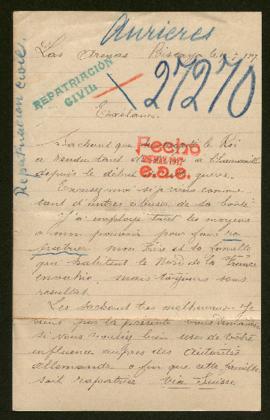 Aurieres
Las Arenas Biscaya le
27270
REPATRIACIÓN
CIVIL
Repatriacion Civil.
Excelence
Sachant que le Roi
a rendu tant à l'humanité
depuis le début guerre.
Fecho
MAY. 1917
Excusez-moi si je viens comme
tant d'autres abuser de sa bonté:
J'ai employé tout les moyens
à mon pouvoir pour faire ra-
patrier mon Père et sa famille
qui habitent le Nord de la France
envahie, mais toujours sans
resultat.
Les sachant tres malheureux. Je
viens par la presente vous demander
si vous voulez bien use de votre
influence aupres des autorités
allemandes a fin que cette famille
soit rapatriée via Suisse